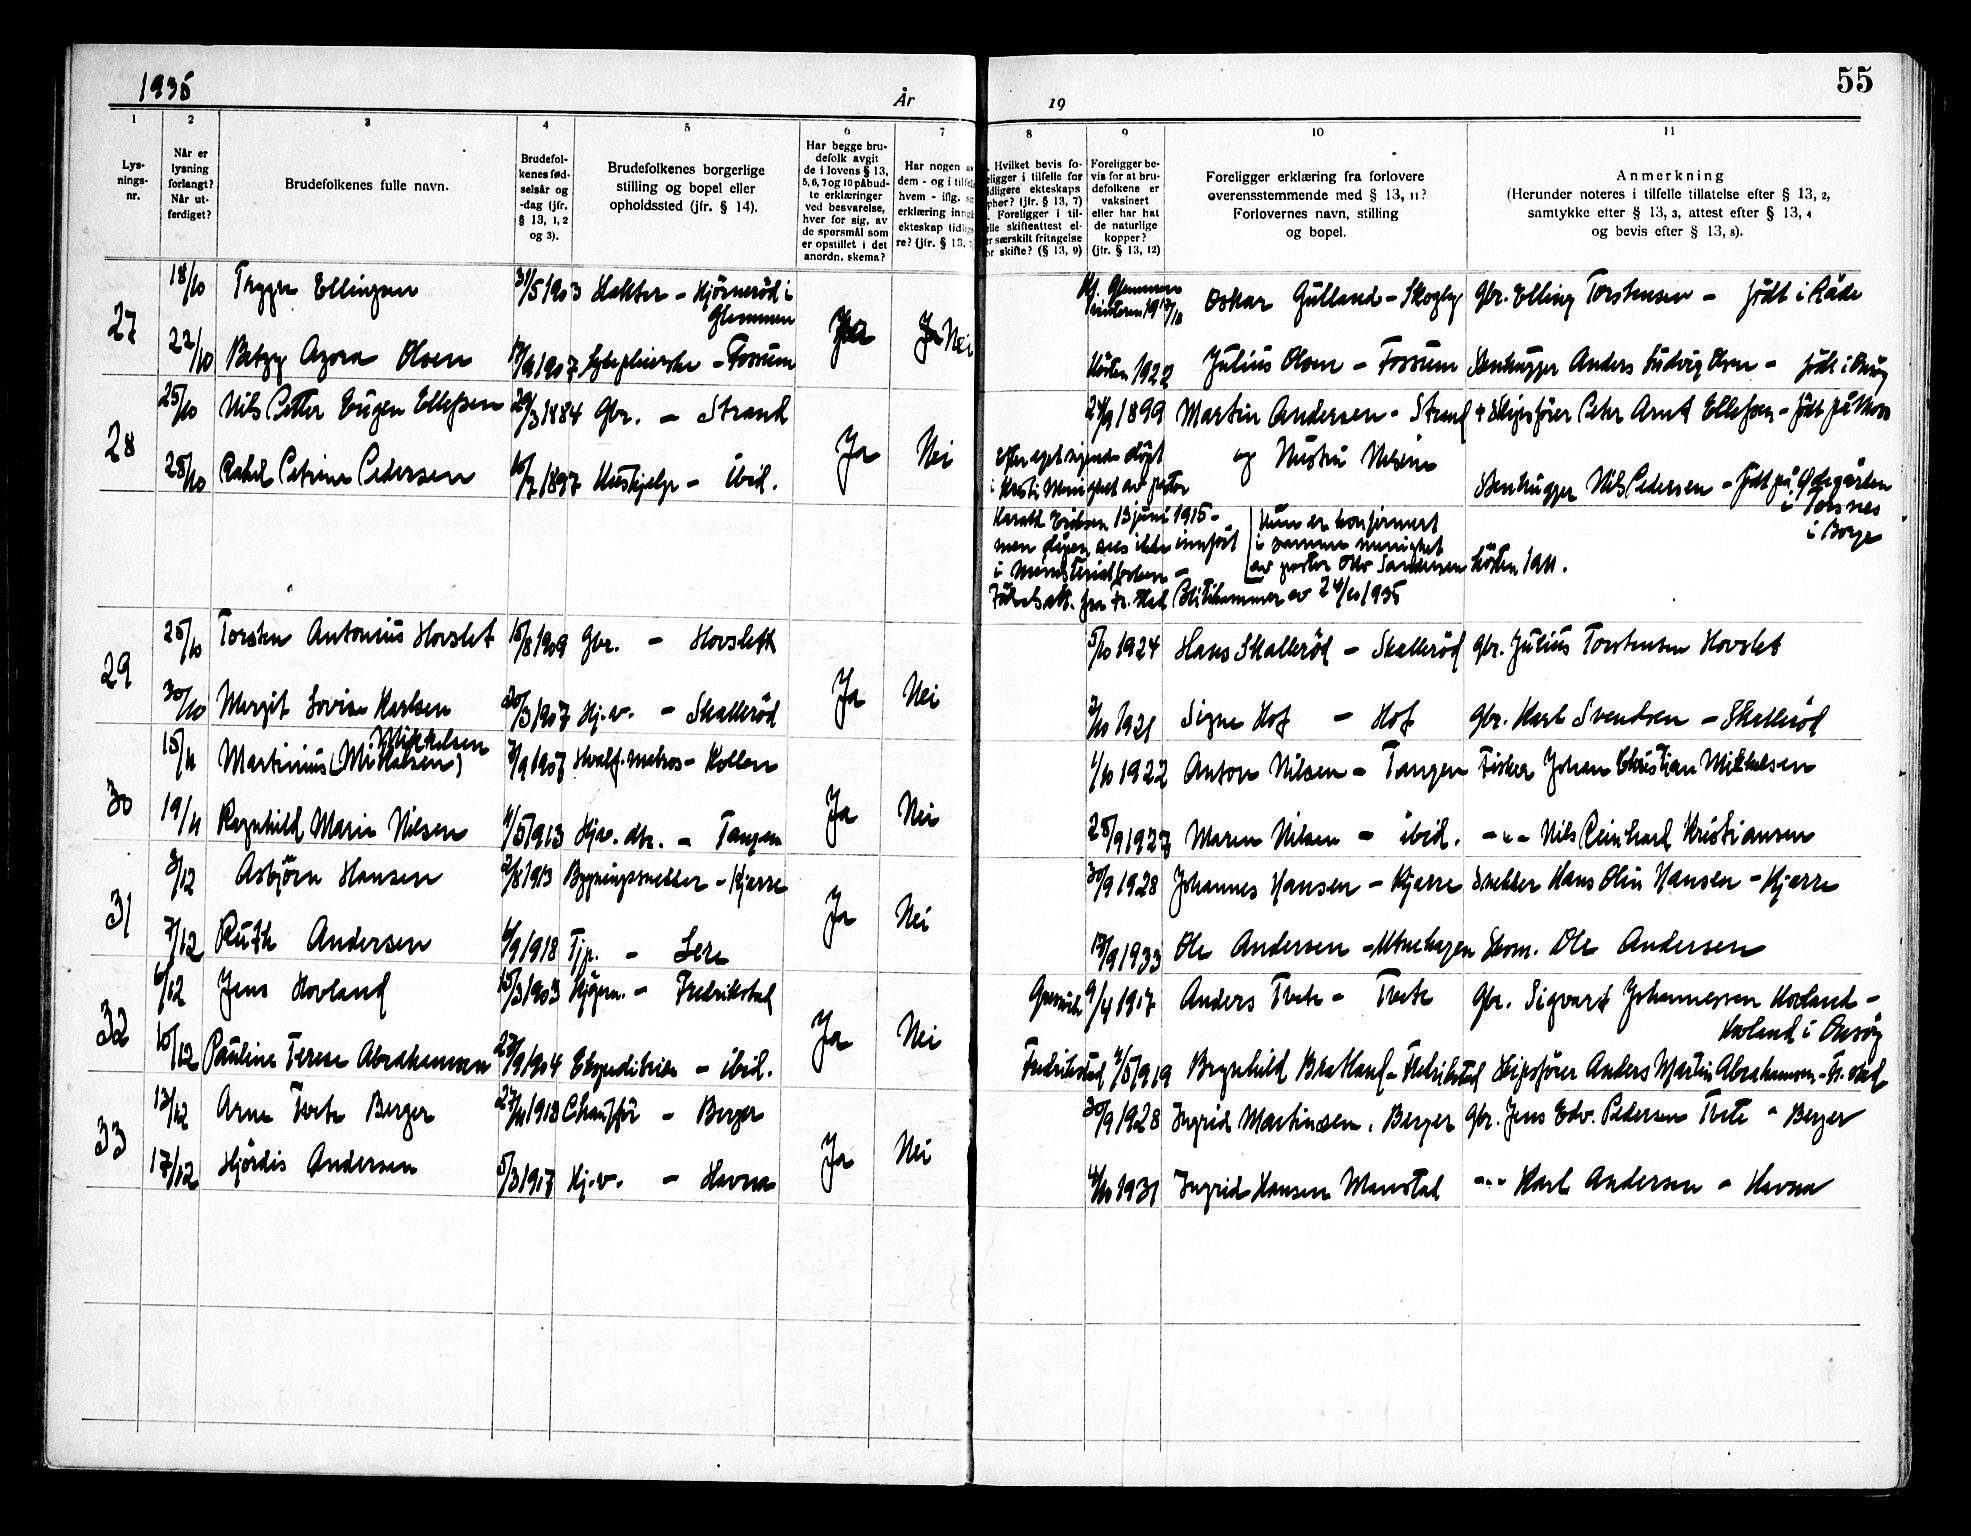 1935
År
19
55
1
2
3
4
5
6
7
8
9
10
11
Lys-
nings-
nr.
Når er
lysning
forlangt?
Når ut-
ferdiget?
Brudefolkenes fulle navn.
Brudefol-
kenes fød-
selsår og
-dag (jfr.
§ 13, 1, 2
og 3).
Brudefolkenes borgerlige
stilling og bopel eller
opholdssted (jfr. § 14).
Har begge bru-
defolk avgit
de i lovens § 13,
5, 6, 7 og 10 påbud-
te erklæringer
ved besvarelse,
hver for sig, av
de spørsmål som
er opstillet i det
anordn. skema?
Har nogen
dem - og i
hvem - iflg.
erklæring
ekteskap
re? (jfr. § 13,
Hvilket bevis fo-
religger i tilfelle for
tidligere ekteskaps
ophør? (jfr. § 13, 7)
Foreligger i til-
felle skifteattest el-
ler særskilt fritagelse
for skifte? (§ 13, 9)
Foreligger be-
vis for at bru-
defolkene er
vaksinert
eller har hat
de naturlige
kopper?
(jfr. § 13, 12)
Foreligger erklæring fra forlovere
overensstemmende med § 13, 11?
Forlovernes navn, stilling
og bopel.
Anmerkning
(Herunder noteres i tilfelle tillatelse efter § 13, 2,
samtykke efter § 13, 3, attest efter § 13, 4
og bevis efter § 13, 8).
27
18/10 Trygve Ellingsen 31/5 1903 Hjørnerød i
Glemmen
Ja Nei
Gl. Glemmen
Oskar Gulland - Skogly Gbr. Elling Torstensen - født i Råde
22/10 Betzy Azora Olsen 1907 - Fossum
Høsten 1922 Julius Olsen - Fossum Stenhugger Anders Ludvig Olsen - født i
28
25/10 Nils Petter Eugen Ellefsen 29/3 1884 Gbr. - Strand
Ja Nei
24/9 1899 Martin Andersen - Strand Skipsfører Peter Arnt Ellefsen - født på
28/10 Rakel Petrine Pedersen 10/7 1897 Hushjelp - ibid.
Efter eget sigende døpt
og Nilsen
Stenhugger Nils Pedersen - født på Ødegården
i Torsnes
i Borge
Harald Eriksen 13 juni 1915 -
men dåpen sees ikke innført
i Ministerialboken -
av 24/10 1935
Hun er konfirmert
i samme menighet
av pastor Otto høsten 1911.
29
25/10 Torsten Antonius Hovslet 15/8 1909 Gbr. - Hovslett
Ja Nei
5/10 1924 Hans Skallerød - Skallerød Gbr. Julius Torstensen Hovslet
30/10 Margit Lovise Karlsen 20/3 1907 Hj.v. - Skallerød
2/10 1921 Signe Hof - Hof Gbr. Karl Svendsen - Skallerød
30
15/11 Martinius (Mikkelsen) Mikkelsen 1907 Hvalf. matros - Kollen
Ja Nei
1/10 1922 Anton Nilsen - Tangen Fisker Johan Christian Mikkelsen
19/11 Ragnhild Marie Nilsen 4/5 1913 Hjv. dtr. - Tangen
25/9 1927 Maren Nilsen - ibid. -"- Nils Reinhard Kristiansen
31
3/12 Asbjørn Hansen 2/8 1913 Bygningssnekker - Kjærre
Ja Nei
30/9 1928 Johannes Hansen - Kjærre Snekker Hans Olin Hansen - Kjærre
7/12 Ruth Andersen 4/9 1918 Tjp. - Lere
17/9 1933 Ole Andersen - Utnehagen Skom. Ole Andersen
32
6/12 Jens Hovland 15/3 1903 Kjøpm. - Fredrikstad
Ja Nei
9/4 1917 Anders Tvete - Tvete Gbr. Sigvart Johannessen Hovland -
Hovland i Onsøy
10/12 Pauline Terese Abrahamsen 27/9 1904 Ekspeditrise - ibid.
Fredrikstad 2/5 1919 Brynhild Bratland - Fredrikstad Skipsfører Anders Martin Abrahamsen - Fr.stad
33
13/12 Arne Tvete Berger 27/11 1913 Chauffør - Berger
Ja Nei
30/9 1928 Ingrid Martinsen, Berger Gbr. Jens Edv. Pedersen Tvete - Berger
17/12 Hjørdis Andersen 5/3 1917 Hj.v. - Havna
4/10 1931 Ingrid Hansen Manstad -"- Karl Andersen - Havna